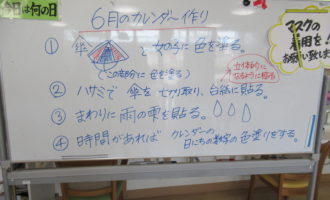 今日は何の日
6月のカレンダー作り
マスクの
着用を!
お願い致します
① 傘 と女の子に色を塗る。
(この部分に色を塗る)
② ハサミで傘を切り取り、台紙に貼る。
③ まわりに雨の雫を貼る。
④ 時間があれば カレンダーの
日にちの数字の色塗りをする。